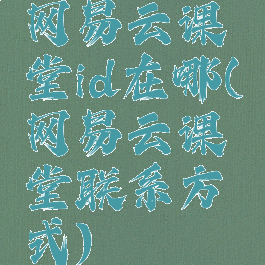 网易云课
堂id在哪(
网易云课
堂联系方
式)